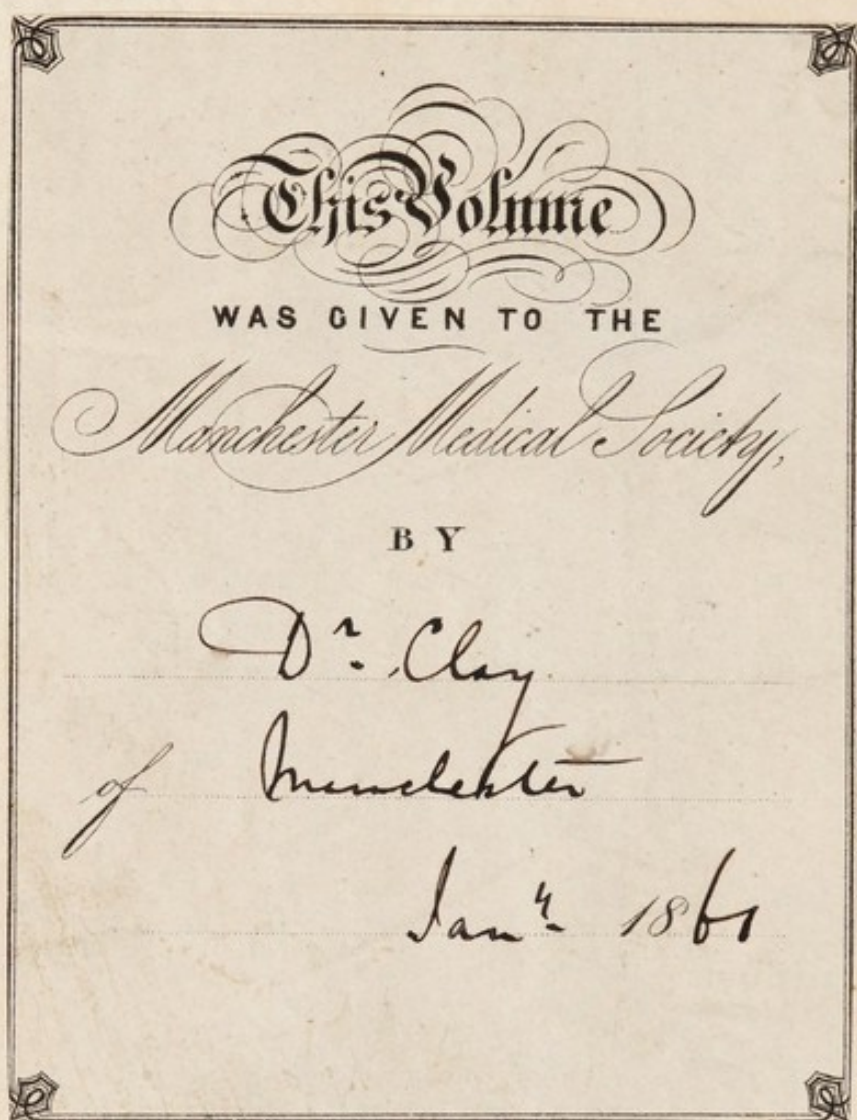 This Volume
WAS GIVEN TO THE
Manchester Medical Society,
BY
Dr. Clay
of Manchester
Jany. 1861